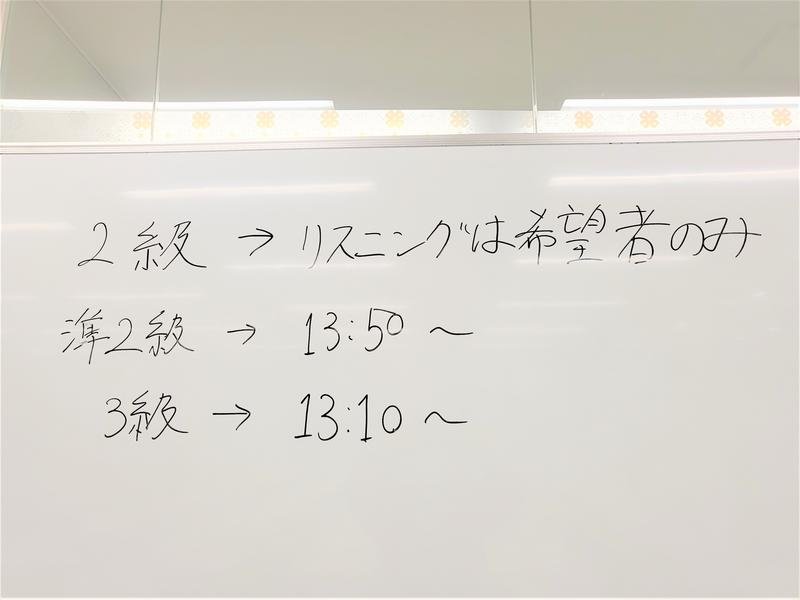 2級 → リスニングは希望者のみ
準2級 → 13:50 ～
3級 → 13:10 ～